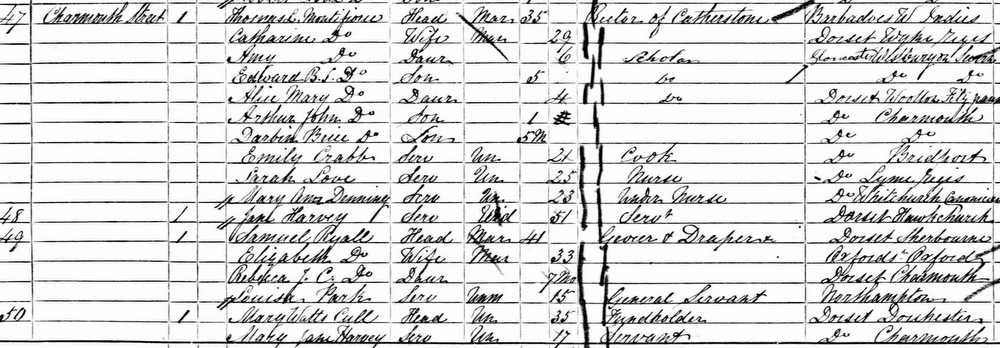 47 Charmouth Street 1 Thomas L. Montefiore Head Mar 35 Rector of Catherstone Barbadoes W Indies
Catharine Do Wife Mar 29 Dorset Wyke Regis
Amy Do Daur 6 Scholar Gloucester Westbury on Severn
Edward B. S. Do Son 5 Do Do Do
Alice Mary Do Daur 4 Do Dorset Wootton Fitzpaine
Arthur John Do Son 1 Do Charmouth
Durbin Do Son 5M Do Do
Emily Crabb Serv Un 21 Cook Do Bridport
Sarah Love Serv Un 25 Nurse Do Lyme Regis
Mary Ann Denning Serv Un 23 Under Nurse Do Whitchurch Canonicorum
48 1 Jane Harvey Serv Wid 51 Servt Dorset Hawkchurch
49 1 Samuel Ryall Head Mar 41 Grocer & Draper Dorset Sherbourne
Elizabeth Do Wife Mar 33 Oxfords Oxford
Rebecca J. C. Do Daur 7Mo Dorset Charmouth
Louisa Park Serv Unm 15 General Servant Northampton
50 1 Mary Watts Cull Head Un 35 Fundholder Dorset Dorchester
Mary Jane Harvey Serv Un 17 Servant Do Charmouth